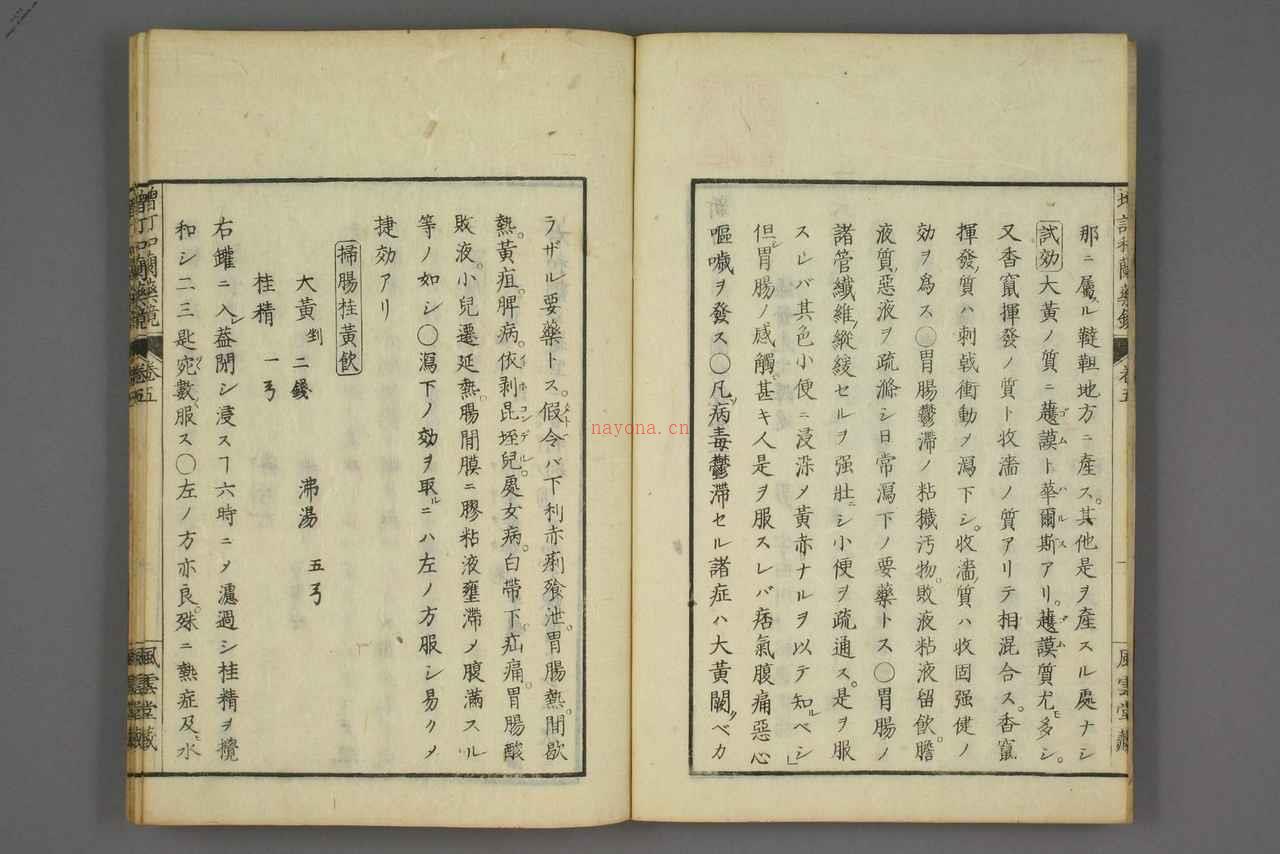 那ニ屬スル韃靼地方ニ產ス。其他是ヲ產スル處ナシ
試効 大黃ノ質ニ護謨ト華爾斯アリ。護謨質尤モ多シ。
又香竄揮發ノ質ト收濇ノ質アリテ相混合ス。香竄
揮發ノ質ハ刺戟衝動メ瀉下シ。收濇ノ質ハ收固强健ノ
効ヲ爲ス〇胃腸鬱滯ノ粘穢汚物。敗液粘液留飮。膽
液質ノ惡液ヲ疏滌シ日常瀉下ノ要藥トス〇胃腸ノ
諸管纖維ノ縱緩セルヲ强壯ニシ小便ヲ疏通ス。是ヲ服
スレバ其色小便ニ浸染メ黃赤ナルヲ以テ知ルベシ」
但シ胃腸ノ感觸甚キ人是ヲ服スレバ痞氣腹痛惡心
嘔噦ヲ發ス〇凡ソ病毒鬱滯セル諸症ハ大黃闕クベカ
ラザル要藥トス。假令バ下利赤痢飱泄。胃腸熱。間歇
熱。黃疸。脾病。依剥昆垤兒。處女病。白帶下。疝痛。胃腸酸
敗液。小兒遷延熱。腸間膜ニ膠粘液壅滯メ腹滿スル
等ノ如シ〇瀉下ノ効ヲ取ルニハ左ノ方服シ易クメ
捷効アリ
掃腸桂黃飮
大黃 剉 二錢 沸湯 五弓
桂精 一弓
右罐ニ入レ葢閉シ浸スヿ六時ニメ濾過シ桂精ヲ攪
和シ二三匙宛數服ス〇左ノ方亦良。殊ニ熱症及ビ水
卷五
風雲堂藏
nayona.cn